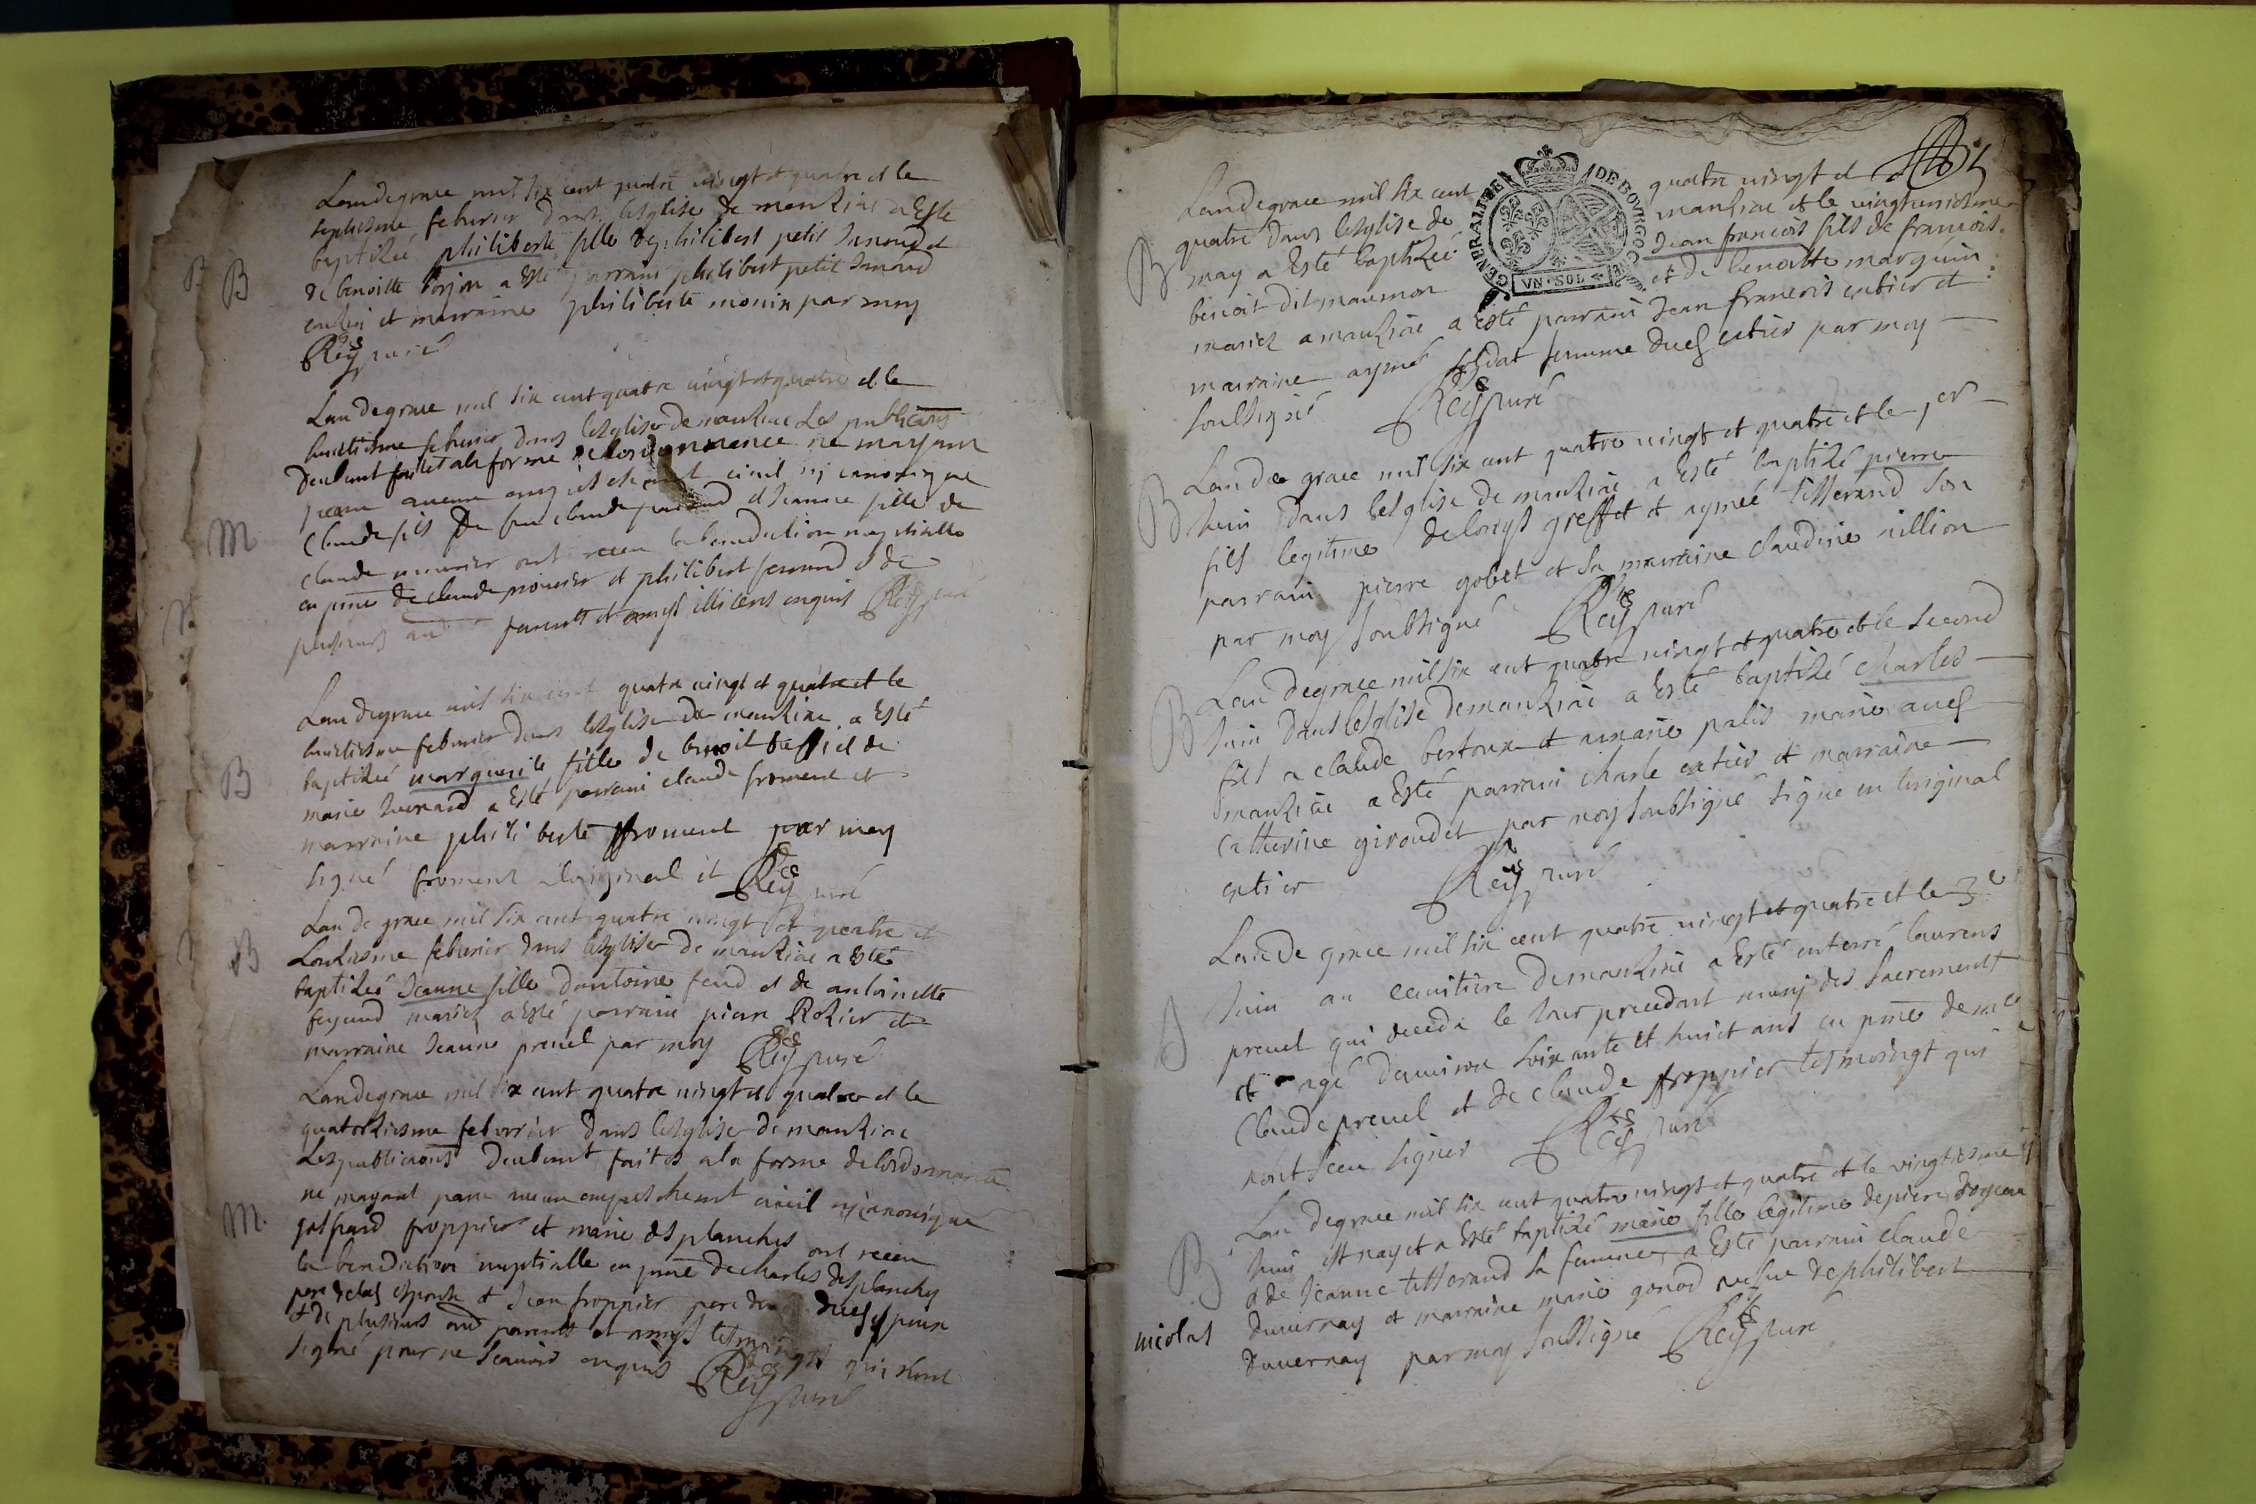 Lan de grace mil six cent quatre vingt et quatre et le
septiesme febvrier dans lesglise de manziac a Esté
baptizée philiberte fille de philibert petit Junoud et
B
de benoitte a Esté parrain philibert petit Junoud
et marraine philiberte monin par moy
Rey curé
Lan de grace mil six cent quatre vingt et quatre et le
huictiesme febvrier dans lesglise de manziac Les publicaons
deubment faites a la forme de lordonnance ne mayant
parue aucun empeschement civil ny canonique
Claude fils de feu claude et Jeanne fille de
M
claude mourier ont receu la benediction nuptialle
en pnce de claude mourier et philibert ferrand et de
plusieurs parents et amys illiteres enquis Rey curé
Lan de grace mil six cent quatre vingt et quatre et le
huictiesme febvrier dans lesglise de manziac a Esté
baptizée marguerite fille de benoit et de
B
marie a Esté parrain claude froment et
marraine philiberte froment par moy
signé froment a loriginal et Rey curé
Lan de grace mil six cent quatre vingt et quatre et
Lonziesme febvrier dans lesglise de manziac a Esté
B
baptizée Jeanne fille dantoine feud et de antoinette
mariez a Esté parrain pierre Rozier et
marraine Jeanne prevel par moy Rey curé
Lan de grace mil six cent quatre vingt et quatre et le
quatorziesme febvrier dans lesglise de manziac
Les publicaons deubment faites a la forme de lordonnance
ne mayant parue aucun empeschement civil ny canonique
M.
gaspard froppier et marie desplanches ont receu
la benediction nuptialle en pnce de charles desplanches
pere de lad espouse et Jean froppier pere dud espoux
et de plusieurs aud parents et amys tesmoingts qui nont
signé pour ne scauoir enquis Rey curé
GENERALITE DE BOVRGOG
VN·SOL
Lan de grace mil six cent quatre vingt et
quatre dans lesglise de manziac et le vingtneuviesme
B
may a Esté baptizé Jean francois fils de francois
benoit dit maumon et de benoitte marguin
mariez a manziac a esté parrain Jean francois cutier et
marraine aymé soldat femme dud cutier par moy
soubsigné Rey curé
Lan de grace mil six cent quatre vingt et quatre et le 1er
B
Juin dans lesglise de manziac a Esté baptizé pierre
fils legitime de loeys greffet et aymée tisserand Son
parrain pierre gobet et sa marraine claudine nillion
par moy soubsigné Rey curé
Lan de grace mil six cent quatre vingt et quatre et le second
B
Juin dans lesglise de manziac a Esté baptizé charles
fils a claude bertoux et a marie palis mariez aud
manziac a Esté parrain charle cutier et marraine
catherine giroudet par moy soubsigné signé en loriginal
cutier Rey curé
Lan de grace mil six cent quatre vingt et quatre et le 3e
Juin au cemitiere de manziac a Esté enterré laurens
prevel qui deceda le Jour precedant muny des Sacrements
et agé denviron soixante et huict ans en pnce de me
Claude prevel et de claude froppier tesmoingt qui
nont sceu signer Rey curé
Lan de grace mil six cent quatre vingt et quatre et le vingtiesme
Juin est nay et a Esté baptizé marie fille legitime de pierre
B
et de Jeanne tisserand sa femme a Esté parrain claude
duvernay et marraine marie gonod vefue de philibert
nicolas
duvernay par moy soubsigné Rey curé